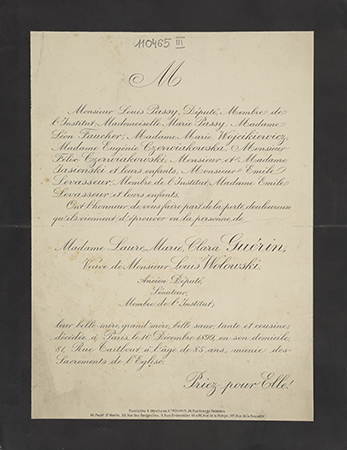 110465 III
M
Monsieur Louis Passy, Député, Membre de
l'Institut, Mademoiselle Marie Passy, Madame
Léon Faucher, Madame Marie Wojcikiewicz,
Madame Eugénie Czerwiakowska, Monsieur
Péter Czerwiakowski, Monsieur et Madame
Jasienski et leurs enfants, Monsieur Emile
Levasseur, Membre de l'Institut, Madame Emile
Levasseur et leurs enfants.
Ont l'honneur de vous faire part de la perte douloureuse
qu'ils viennent d'éprouver en la personne de
Madame Laure, Marie, Clara Guérin,
Veuve de Monsieur Louis Wolowski,
Ancien Député,
Sénateur,
Membre de l'Institut,
leur belle mère, grand'mère, belle sœur, tante et cousine,
décédée à Paris, le 16 Décembre 1899, en son domicile,
81, Rue Taitbout à l'âge de 85 ans, munie des
Sacrements de l'Eglise.
Priez pour Elle!